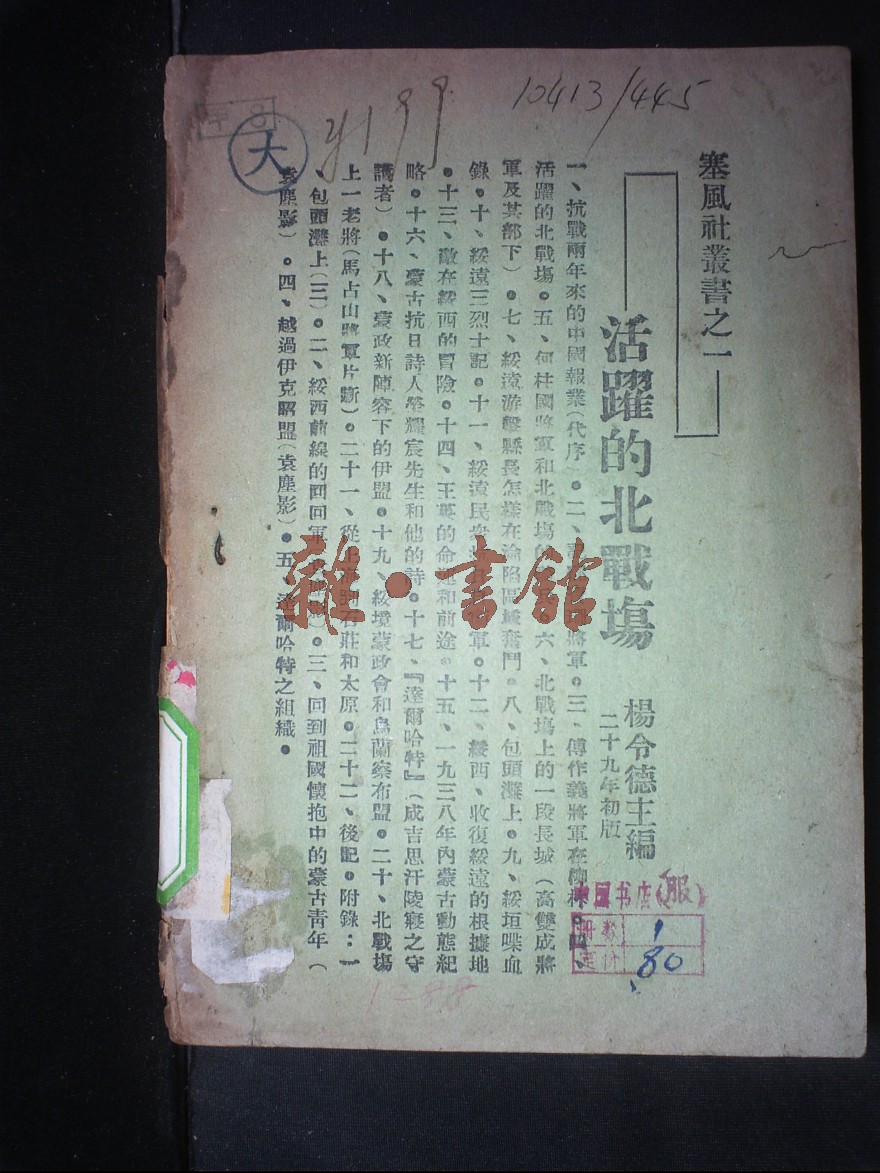 10413/445
大
塞風社叢書之一
活躍的北戰場
楊令德主編
二十九年初版
一、抗戰兩年來的中國報業(代序)●二、將軍●三、傅作義將軍在柳林●四、
活躍的北戰場●五、何柱國將軍和北戰場的六、北戰場上的一段長城(高雙成將
軍及其部下)●七、綏遠游擊縣長怎樣在淪陷區域奮鬥●八、包頭灘上●九、綏垣喋血
錄●十、綏遠三烈士記●十一、綏遠民衆軍●十二、綏西、收復綏遠的根據地
●十三、敵在綏西的冒險●十四、王英的命運和前途●十五、一九三八年內蒙古動態紀
略●十六、蒙古抗日詩人榮耀宸先生和他的詩●十七、『達爾哈特』(成吉思汗陵寢之守
護者)●十八、蒙政新陣容下的伊盟●十九、綏境蒙政會和烏蘭察布盟●二十、北戰場
上一老將(馬占山將軍片斷)●二十一、從石莊和太原●二十二、後記●附錄:一
、包頭灘上(三)●二、綏西前線的回回軍●三、回到祖國懷抱中的蒙古青年(
袁塵影)●四、越過伊克昭盟(袁塵影)●五、達爾哈特之組織●
雜·書館
中国书店(服)
册数 1
定价 80